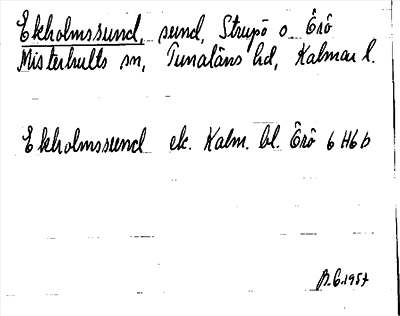 Ekholmssund, sund, Strupö o Örö
Misterhults sn, Tunaläns hd, Kalmar l.
Ekholmssund ek. Kalm. bl. Örö 6 H6 b
B.G. 1957